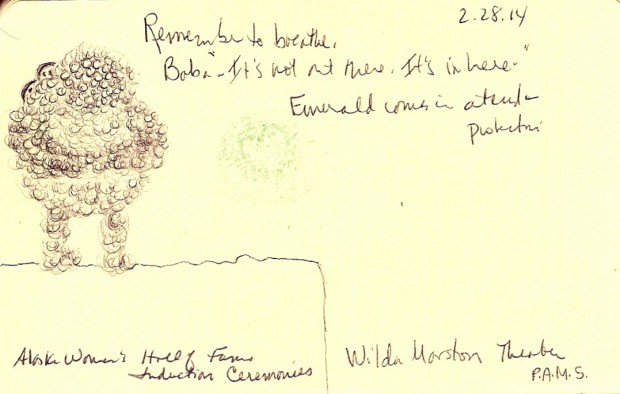 2.28.14
Remember to breathe.
Baba - It's not out there. It's in here."
Emerald comes in
Alaska Women's Hall of Fame
Induction Ceremonies
Wilda Marston Theater
P.A.M.S.